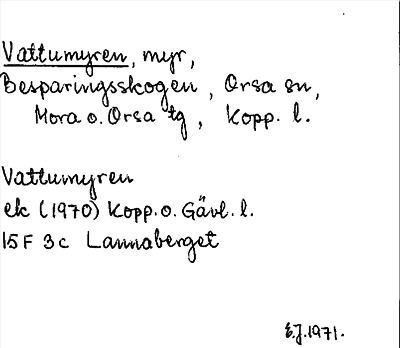 Vattumyren, myr,
Besparingsskogen, Orsa sn,
Mora o. Orsa tg, Kopp. l.
Vattumyren
ek (1970) Kopp. o. Gävl. l.
15F 3c Lannaberget
E.J. 1971.